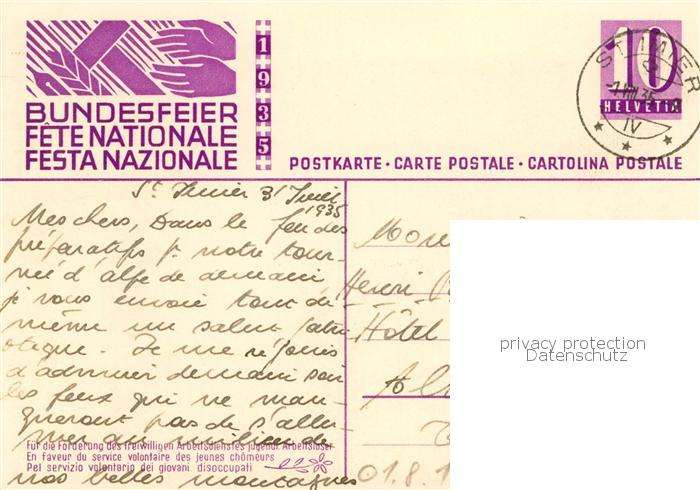 BUNDESFEIER
FÊTE NATIONALE
FESTA NAZIONALE
1935
10
HELVETIA
ST. IMIER
IV
POSTKARTE · CARTE POSTALE · CARTOLINA POSTALE
St Imier 31 Juil
1935
Mes chers, Dans le feu des
préparatifs pr notre tour-
née d'alpe de demain
je vous envoie tout de
même un salut patri-
otique. Je me réjouis
d'admirer demain soir
les feux qui ne man-
queront pas de s'allu-
mer au milieu de
nos belles montagnes
Für die Förderung des freiwilligen Arbeitsdienstes jugendl. Arbeitsloser
En faveur du service volontaire des jeunes chômeurs
Pel servizio volontario dei giovani disoccupati
Henri
Hôtel
01.8.1
privacy protection
Datenschutz